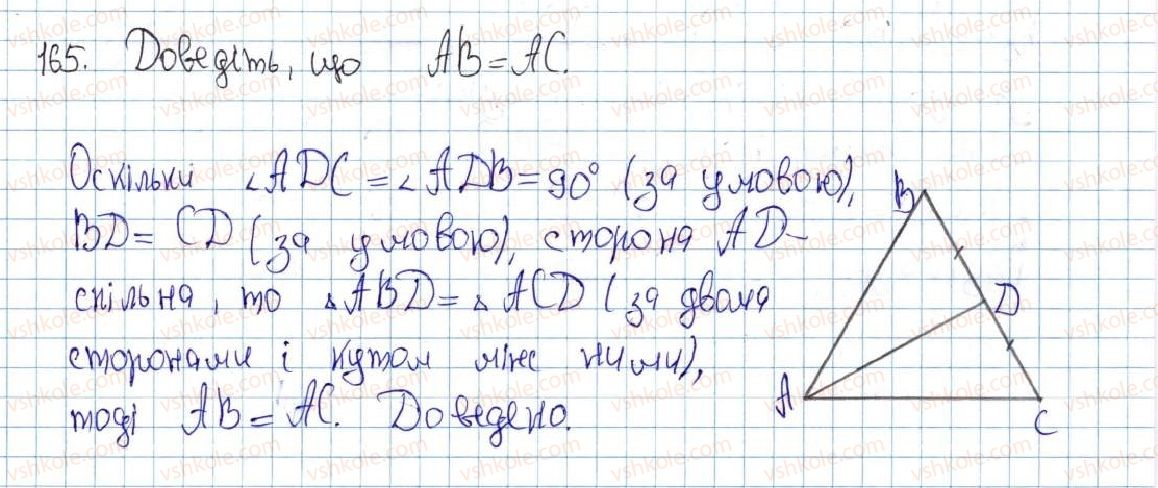 165. Доведіть, що AB = AC.
Оскільки ∠ADC = ∠ADB = 90° (за умовою),
BD = CD (за умовою), сторона AD –
спільна, то △ABD = △ACD (за двома
сторонами і кутом між ними),
тоді AB = AC. Доведено.
B
D
A
C
vshkole.com